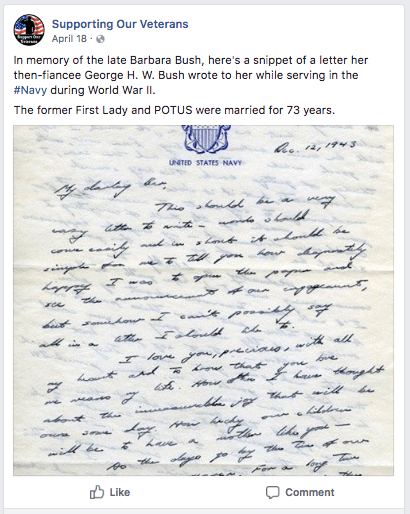 Supporting Our Veterans
April 18 ·
In memory of the late Barbara Bush, here's a snippet of a letter her
then-fiancee George H. W. Bush wrote to her while serving in the
#Navy during World War II.
The former First Lady and POTUS were married for 73 years.
UNITED STATES NAVY
Dec. 12, 1943
My darling Bar,
This should be a very
easy letter to write — words should
come easily and in short it should be
simple for me to tell you how desperately
happy I was to open the paper and
see the announcement of our engagement,
but somehow I can't possibly say
all in a letter I should like to.
I love you, precious, with all
my heart and to know that you love
me means my life. How often I have thought
about the immeasurable joy that will be
ours some day. How lucky our children
will be to have a mother like you —
As the days go by the time of our
For a long time
the
Like
Comment